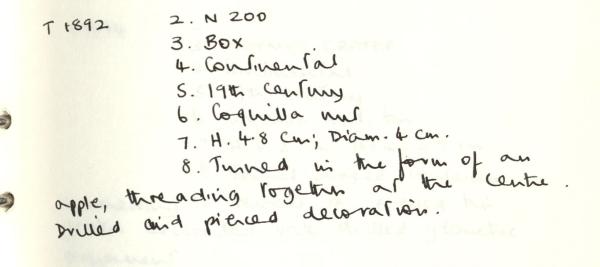 T 1892 2. N 200
3. Box
4. Continental
5. 19th century
6. Coquilla nut
7. H. 4.8 cm; Diam. 4 cm.
8. Turned in the form of an
apple, threading together at the centre.
Drilled and pierced decoration.